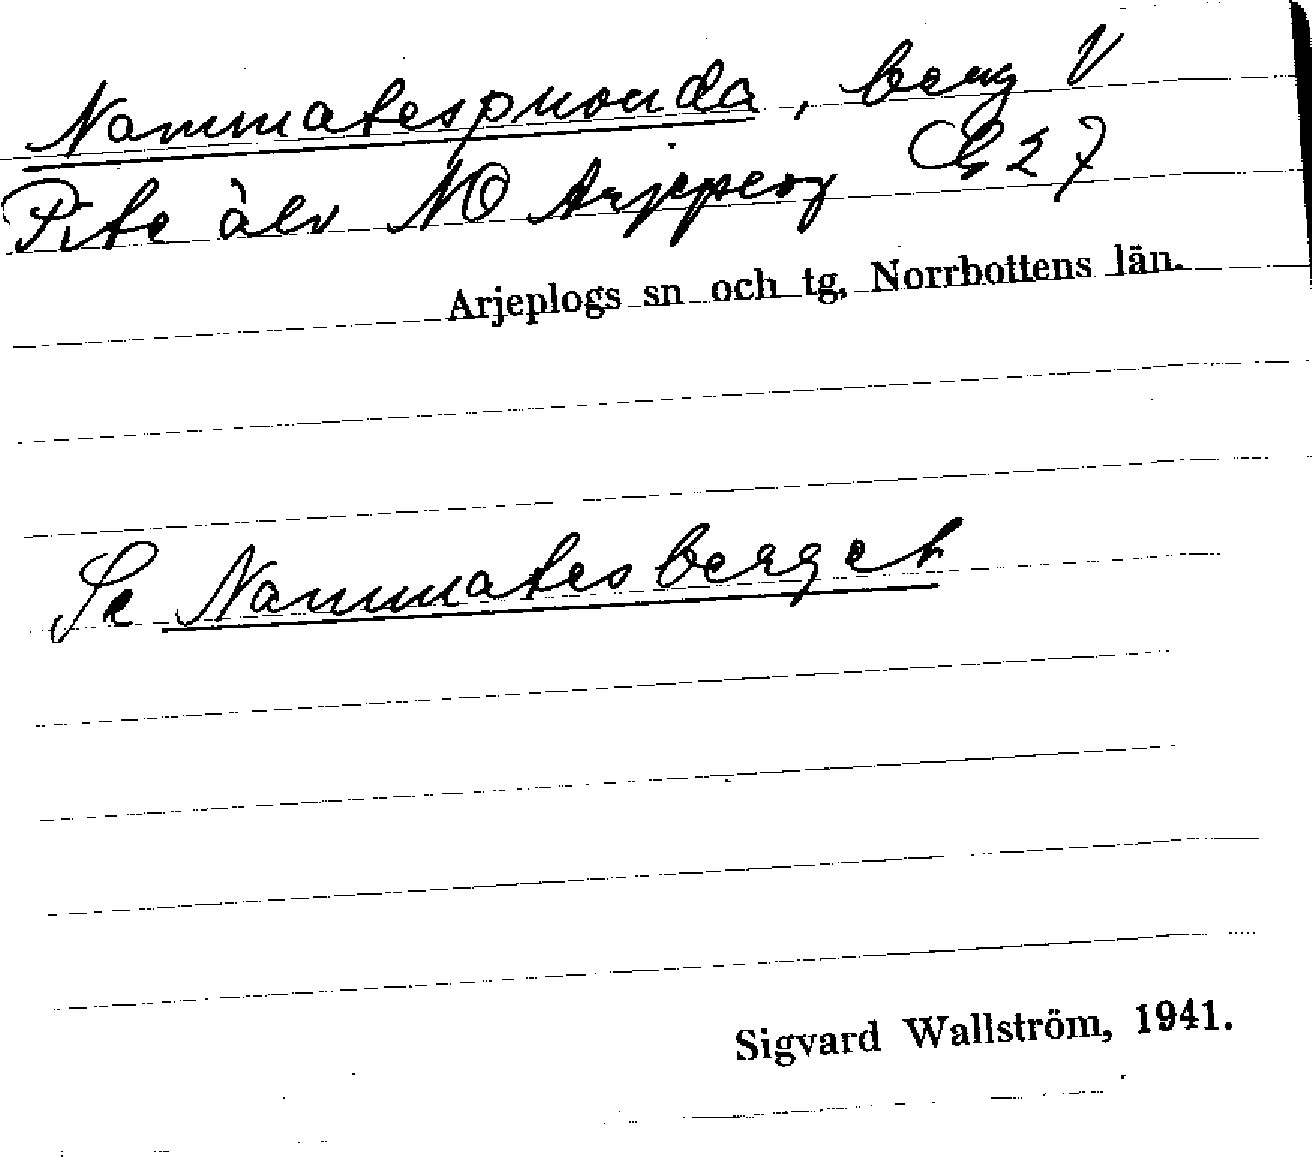 Nammatespuouda, berg V
Pite älv NO Arjeplog G 27
Arjeplogs sn och tg, Norrbottens län.
Se Nammatesberget
Sigvard Wallström, 1941.